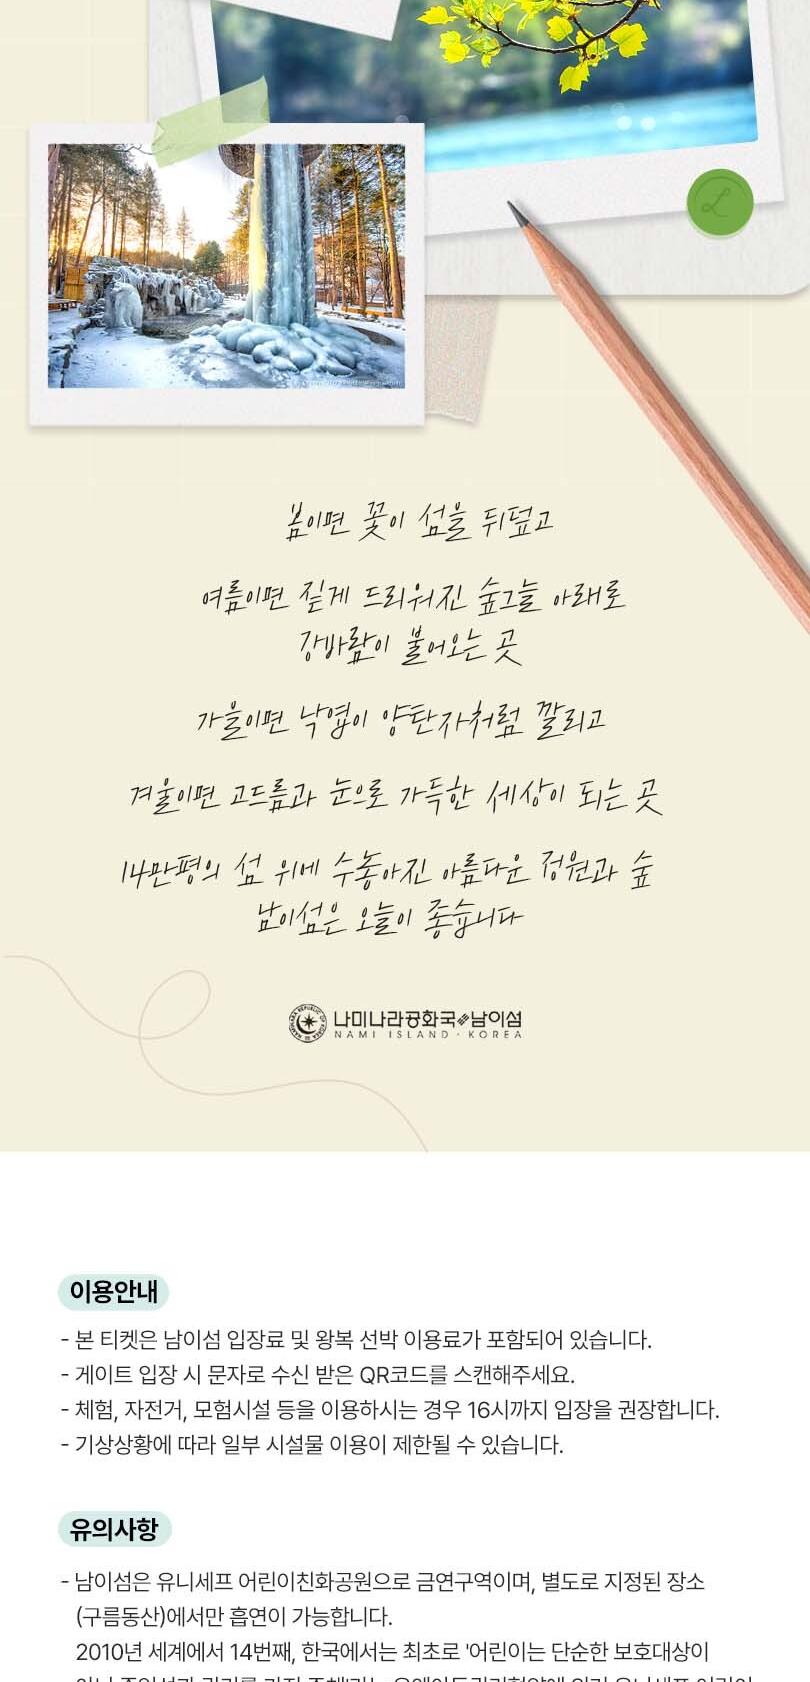 봄이면 꽃이 섬을 뒤덮고
여름이면 짙게 드리워진 숲그늘 아래로
강바람이 불어오는 곳
가을이면 낙엽이 양탄자처럼 깔리고
겨울이면 고드름과 눈으로 가득한 세상이 되는 곳
14만평의 섬 위에 수놓아진 아름다운 정원과 숲
남이섬은 오늘이 좋습니다
나미나라공화국 남이섬
NAMI ISLAND · KOREA
이용안내
- 본 티켓은 남이섬 입장료 및 왕복 선박 이용료가 포함되어 있습니다.
- 게이트 입장 시 문자로 수신 받은 QR코드를 스캔해주세요.
- 체험, 자전거, 모험시설 등을 이용하시는 경우 16시까지 입장을 권장합니다.
- 기상상황에 따라 일부 시설물 이용이 제한될 수 있습니다.
유의사항
- 남이섬은 유니세프 어린이친화공원으로 금연구역이며, 별도로 지정된 장소
(구름동산)에서만 흡연이 가능합니다.
2010년 세계에서 14번째, 한국에서는 최초로 '어린이는 단순한 보호대상이